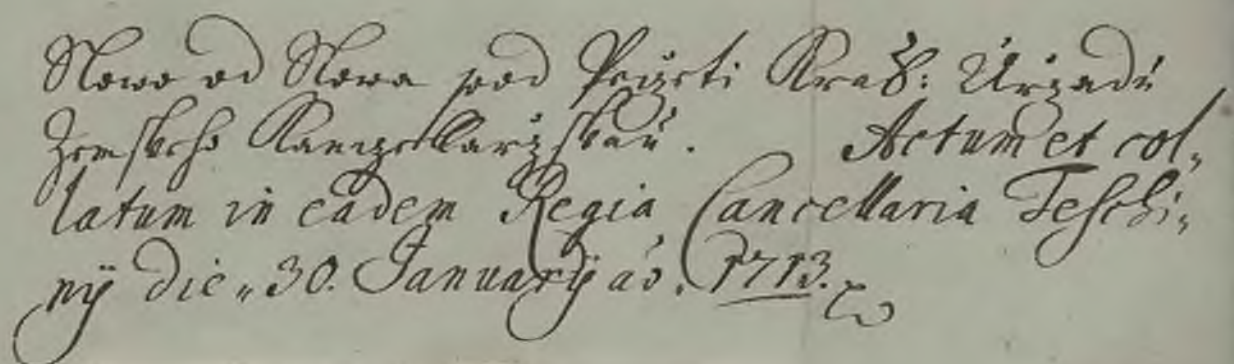 Slowo od Slowa pod Peczeti Kral: Urzadu
Zemskeho Kanczellarzskau. Actum et col,,
latum in eadem Regia Cancellaria Teschi,,
nÿ die „30. Januarÿ ao. 1713.